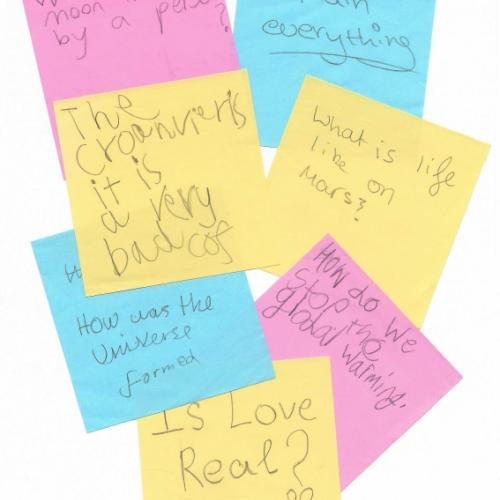 moon
by a
?
everything
The
it is
a very
bad
What is life
like on
Mars?
How was the
Universe
formed
How do We
Stop the
global warming.
Is Love
Real?